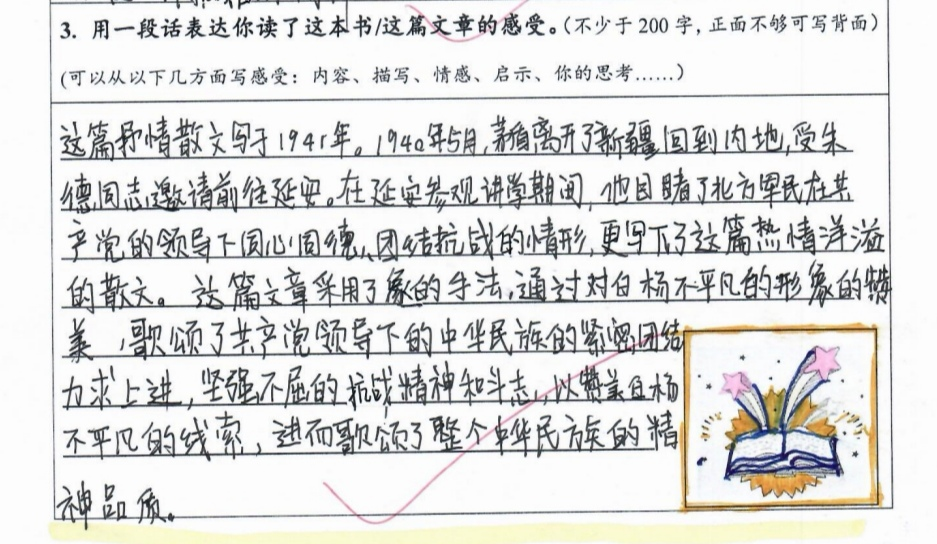 3. 用一段话表达你读了这本书/这篇文章的感受。（不少于 200 字，正面不够可写背面）
（可以从以下几方面写感受：内容、描写、情感、启示、你的思考……）
这篇抒情散文写于1941年。1940年5月,茅盾离开了新疆回到内地,受朱
德同志邀请前往延安。在延安参观讲学期间,他目睹了北方军民在共
产党的领导下同心同德、团结抗战的情形,更写下了这篇热情洋溢
的散文。这篇文章采用了象的手法,通过对白杨不平凡的形象的赞
美,歌颂了共产党领导下的中华民族的紧密团结
力求上进,坚强不屈的抗战精神和斗志,以赞美白杨
不平凡的线索,进而歌颂了整个中华民族的精
神品质。